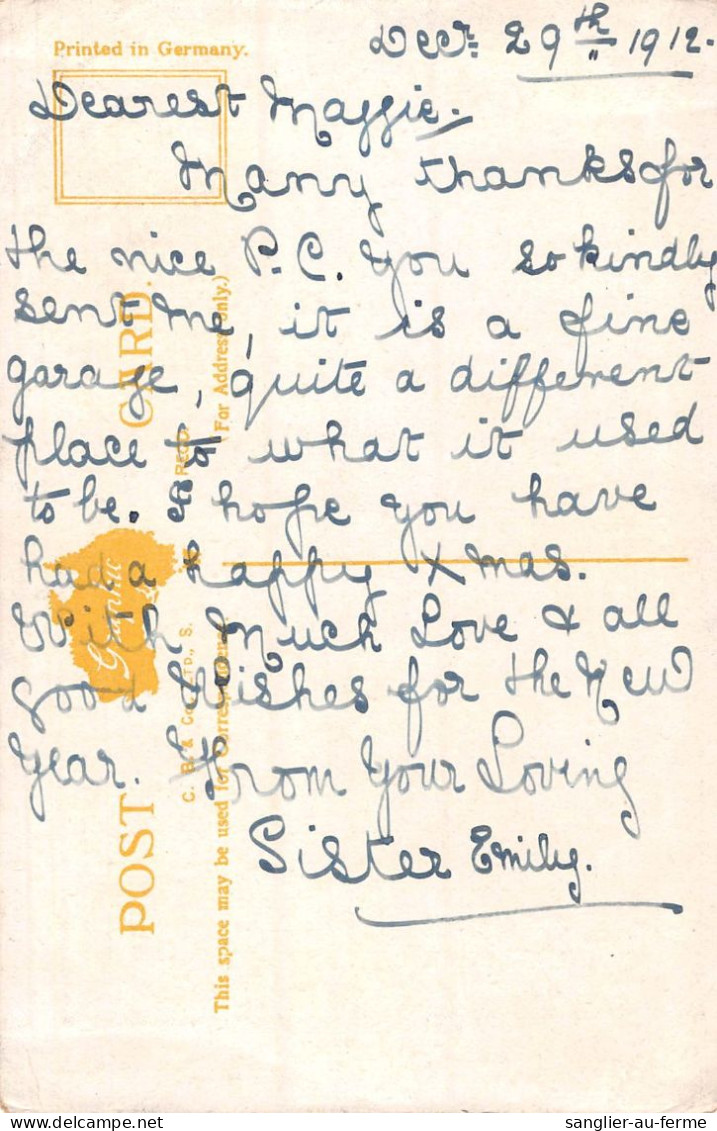 Printed in Germany.
Decr. 29th 1912.
Dearest Maggie.
Many thanks for
the nice P.C. you so kindly
sent me, it is a fine
garage, quite a different
place to what it used
to be. I hope you have
had a happy Xmas.
With Much Love & all
good Wishes for the New
Year. From Your Loving
Sister Emily.
POST CARD.
(For Address only.)
This space may be used for Correspondence
C. B. & Co. LTD., S.
REGD.
sanglier-au-ferme